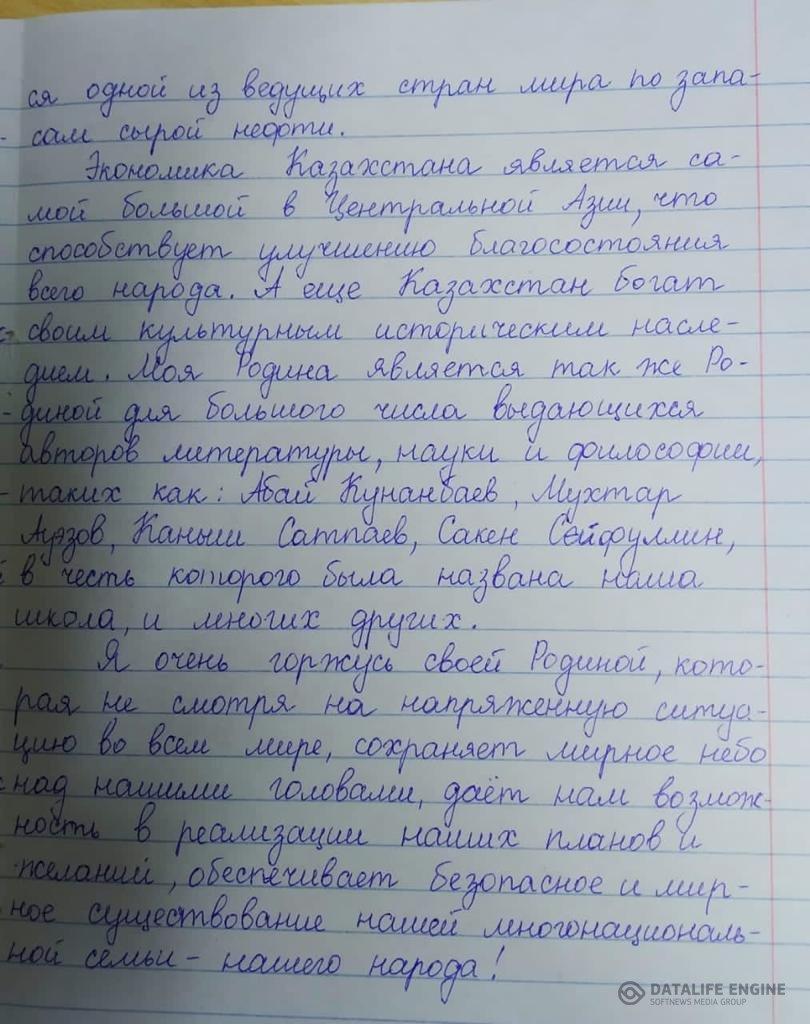 ся одной из ведущих стран мира по запа-
сам сырой нефти.
Экономика Казахстана является са-
мой большой в Центральной Азии, что
способствует улучшению благосостояния
всего народа. А еще Казахстан богат
своим культурным историческим насле-
дием. Моя Родина является так же Ро-
диной для большого числа выдающихся
авторов литературы, науки и философии,
таких как: Абай Кунанбаев, Мухтар
Ауэзов, Каныш Сатпаев, Сакен Сейфуллин,
в честь которого была названа наша
школа, и многих других.
Я очень горжусь своей Родиной, кото-
рая не смотря на напряженную ситуа-
цию во всем мире, сохраняет мирное небо
над нашими головами, даёт нам возмож-
ность в реализации наших планов и
желаний, обеспечивает безопасное и мир-
ное существование нашей многонациональ-
ной семьи - нашего народа!
DATALIFE ENGINE
SOFTNEWS MEDIA GROUP